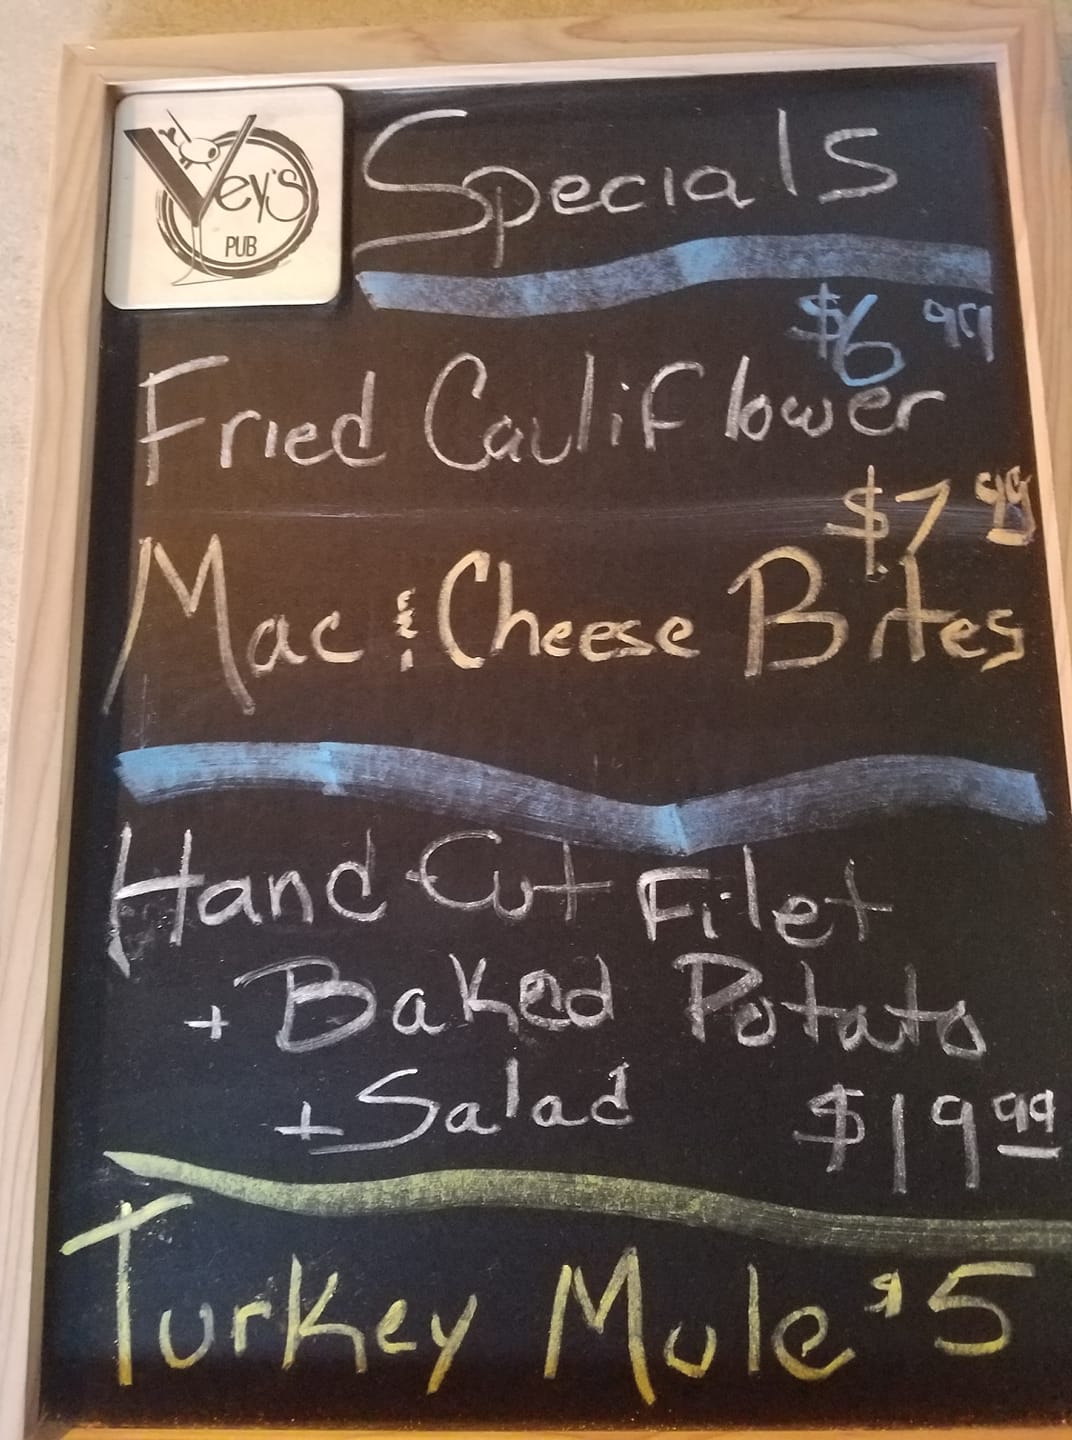 Vey's
PUB
Specials
$6 99
Fried Cauliflower
$7 99
Mac & Cheese Bites
Hand Cut Filet
+ Baked Potato
+ Salad $19 99
Turkey Mule $5